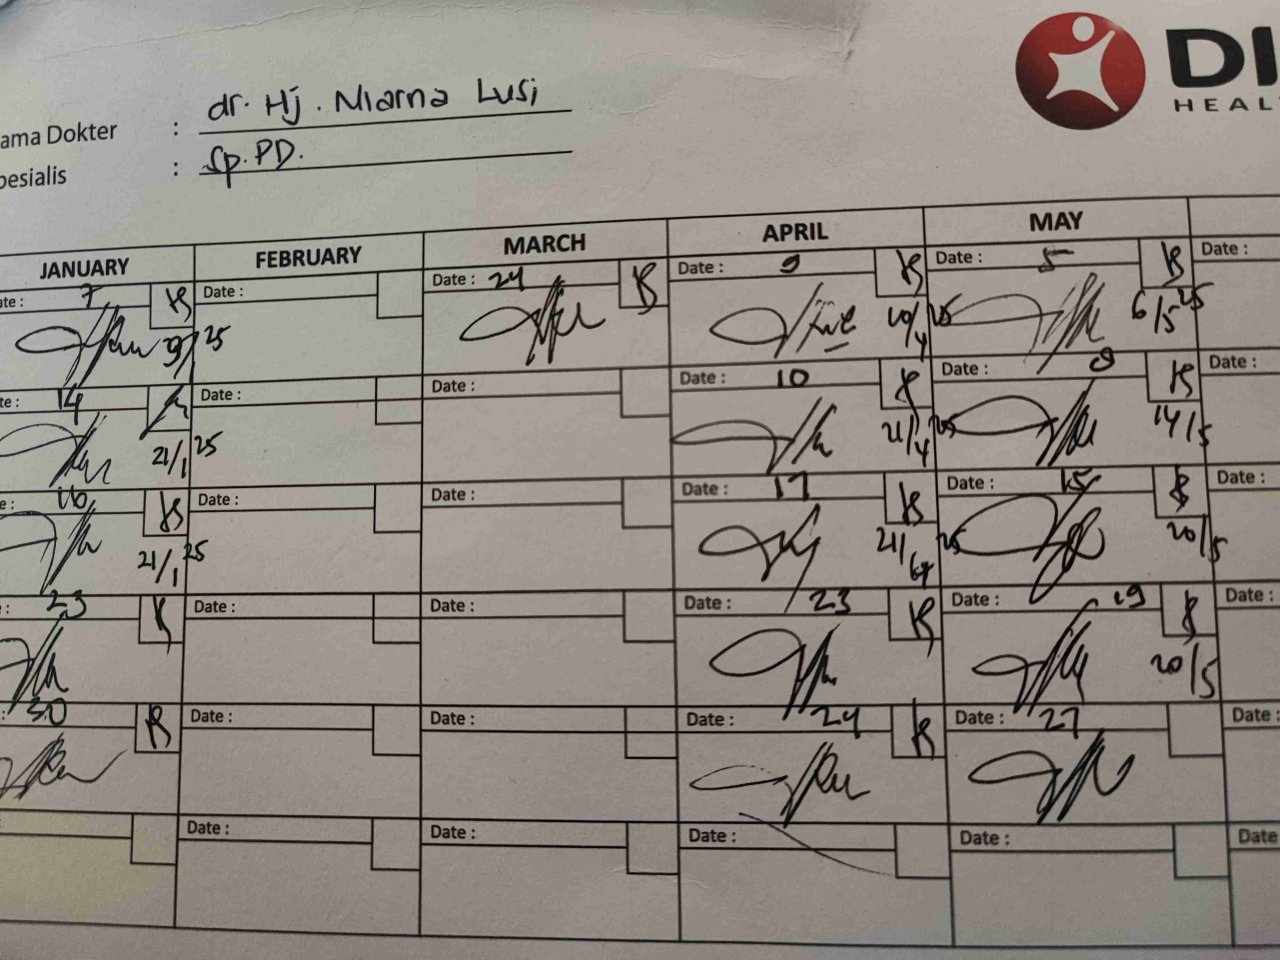 DI
HEAL
ama Dokter : dr. Hj. Niarna Lusi
pesialis : Sp.PD.
JANUARY FEBRUARY MARCH APRIL MAY
ate : 7 Date : Date : 24 Date : 9 Date : 5 Date :
9/1 25 10/4 25 6/5 25
te : 14 Date : Date : Date : 10 Date : 8 Date :
21/1 25 21/4 25 14/5
e : 16 Date : Date : Date : 17 Date : 15 Date :
21/1 25 21/4 25 20/5
: 23 Date : Date : Date : 23 Date : 19 Date :
20/5
: 30 Date : Date : Date : 24 Date : 27 Date :
: Date : Date : Date : Date : Date